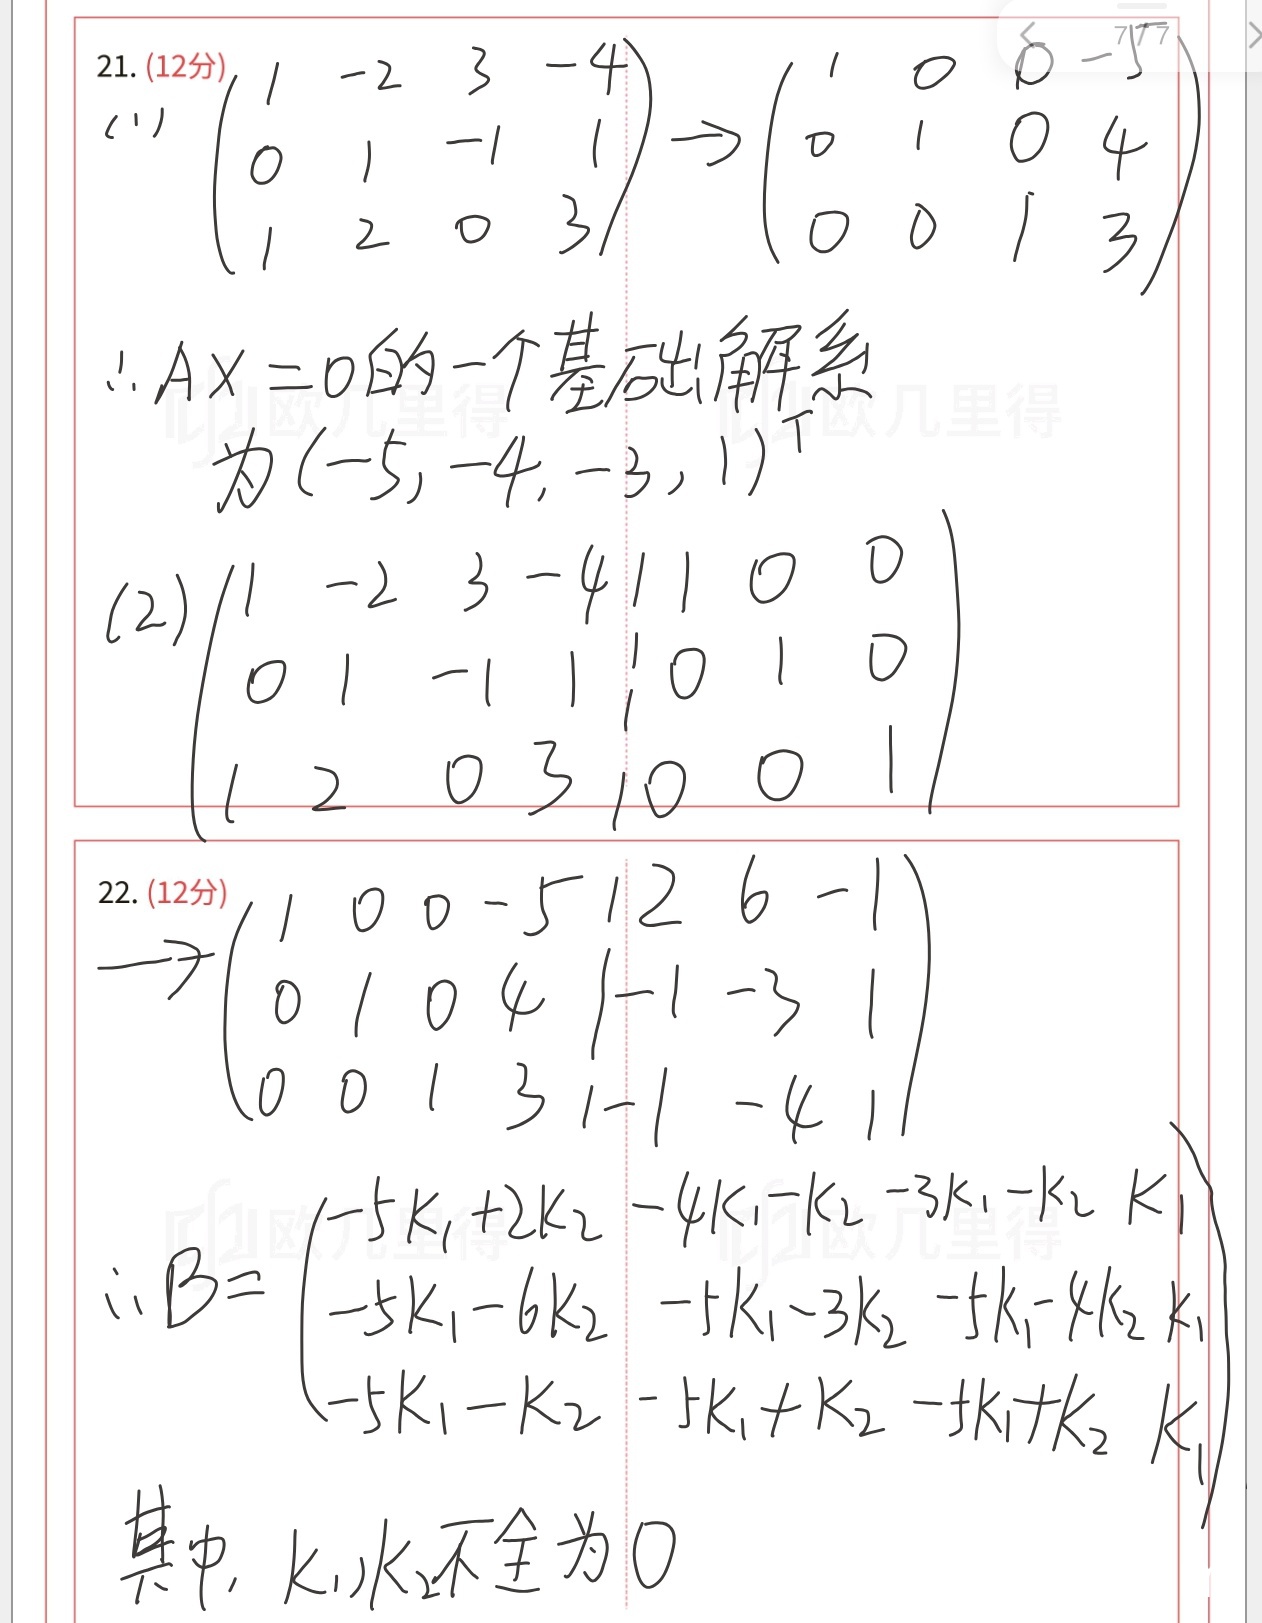 7/7
21. (12分)
(1) (1 -2 3 -4 → (1 0 0 -5
0 1 -1 1 0 1 0 4
1 2 0 3) 0 0 1 3)
∴AX=0的一个基础解系
为(-5,-4,-3,1)ᵀ
(2) (1 -2 3 -4 | 1 0 0
0 1 -1 1 | 0 1 0
1 2 0 3 | 0 0 1)
22. (12分)
→ (1 0 0 -5 | 2 6 -1
0 1 0 4 | -1 -3 1
0 0 1 3 | -1 -4 1)
∴B= (-5k₁+2k₂ -4k₁-k₂ -3k₁-k₂ k₁
-5k₁-6k₂ -5k₁-3k₂ -5k₁-4k₂ k₁
-5k₁-k₂ -5k₁+k₂ -5k₁+k₂ k₁)
其中,k₁,k₂不全为0
欧几里得 欧几里得
欧几里得 欧几里得